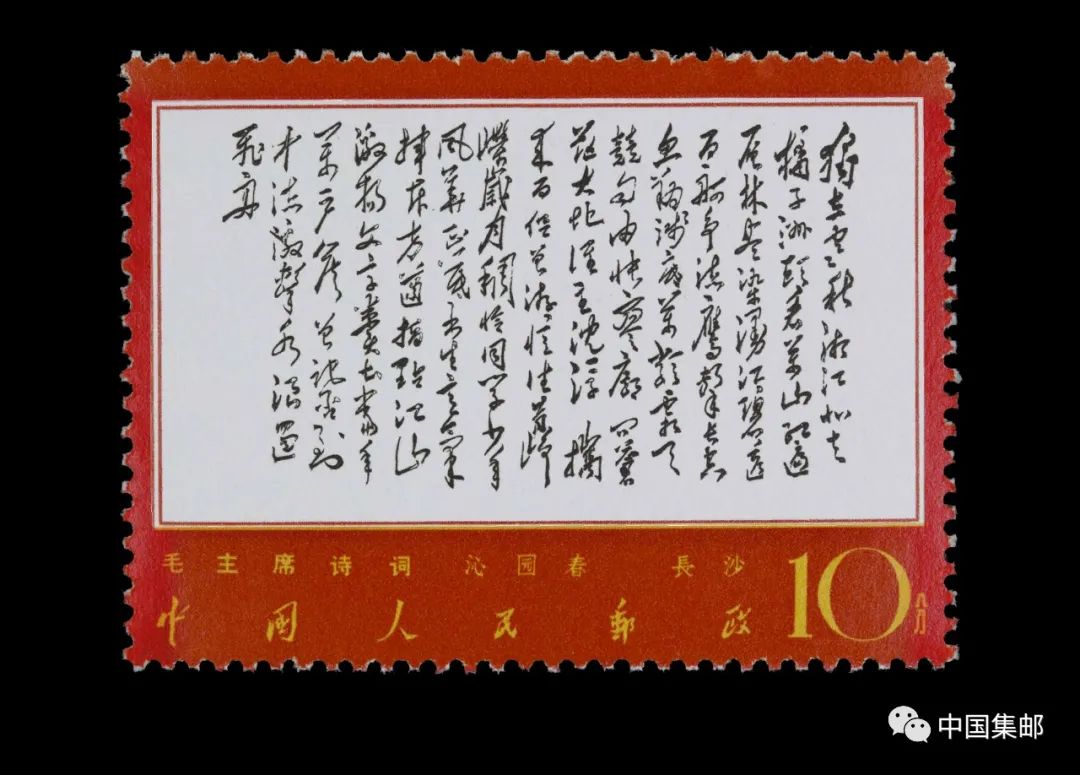 獨立寒秋湘江北去
橘子洲頭看萬山紅遍
层林尽染漫江碧透
百舸争流鷹擊長空
鱼翔浅底萬類霜天
競自由怅寥廓問蒼
茫大地谁主沈浮 攜
来百侣曾游忆往昔峥
嵘歲月稠恰同學少年
风華正茂书生意氣
挥斥方遒指點江山
激扬文字糞土当年
萬户侯曾記否到
中流擊水浪遏
飛舟
毛主席诗词 沁园春 長沙
中國人民郵政 10分
中国集邮